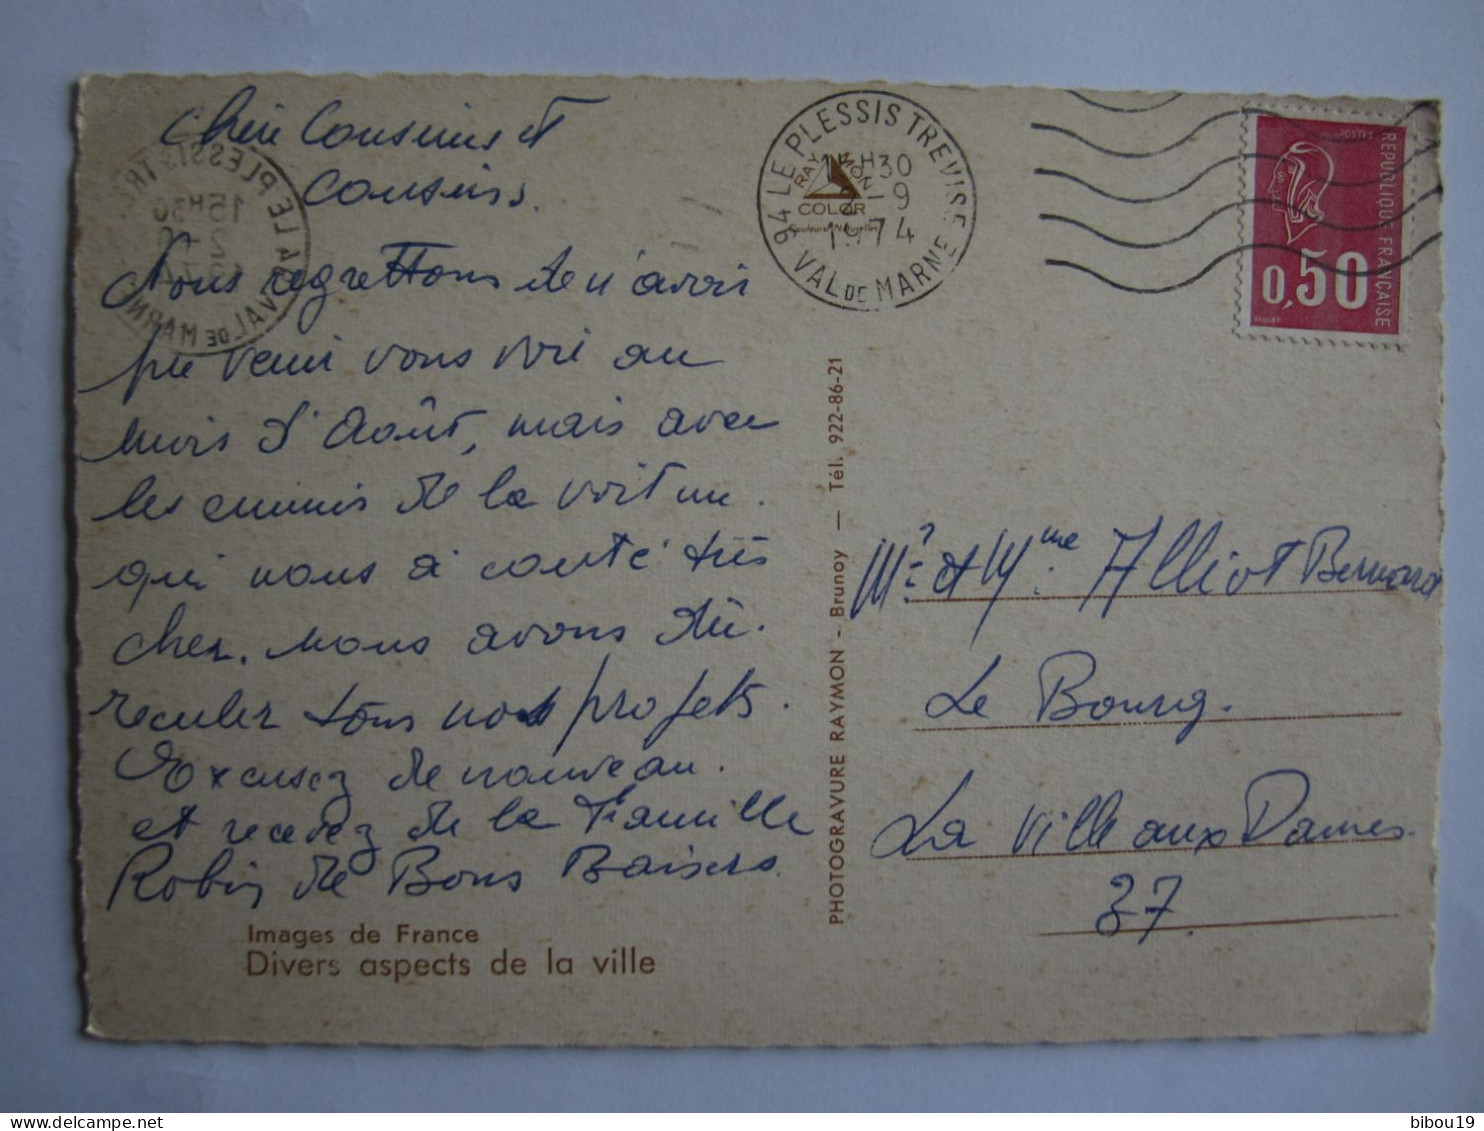 Chers Cousins et
Cousins.
Nous regrettons de n'avoir
pu venir vous voir au
mois d'Août, mais avec
les ennuis de la voiture.
qui nous à couté très
cher. nous avons dû.
reculer tous nos projets.
Excusez de nouveau.
et recevez de la Famille
Robin de Bons Baisers.
Images de France
Divers aspects de la ville
PHOTOGRAVURE RAYMON - Brunoy — Tél. 922-86-21
94 LE PLESSIS TREVISE
15H30
2-9
1974
VAL DE MARNE
RAYMON
COLOR
Couleurs Naturelles
POSTES
REPUBLIQUE FRANÇAISE
0,50
BEQUET
Mr et Mme Alliot Bernard
Le Bourg.
La Ville aux Dames.
37.
bibou19